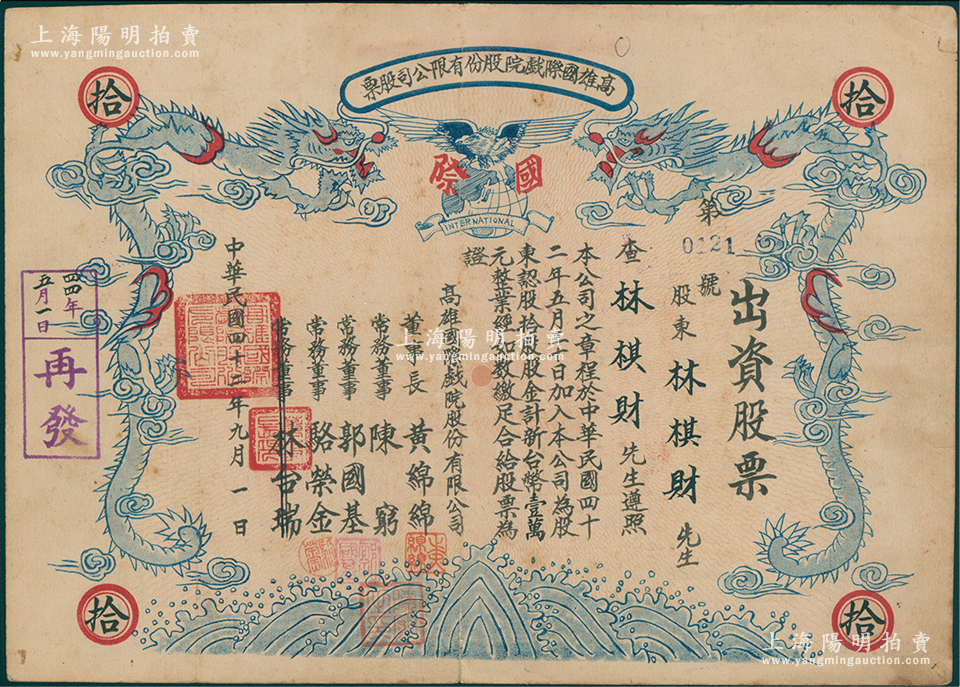 上海陽明拍賣
www.yangmingauction.com
高雄國際戲院股份有限公司股票
拾
拾
國際
INTERNATIONAL
出資股票
第
0121
號
股東 林棋財 先生
查 林棋財 先生遵照
本公司之章程於中華民國四十
二年五月 日加入本公司為股
東認股拾股股金計新台幣壹萬
元整業經如數繳足合給股票為
證
高雄國際戲院股份有限公司
董事長 黃綿綿
常務董事 陳窮
常務董事 郭國基
常務董事 駱榮金
常務董事 林台瑞
中華民國四十二年九月一日
四四年
五月一日
再發
上海陽明拍賣
www.yangmingauction.com
拾
拾
上海陽明拍賣
www.yangmingauction.com